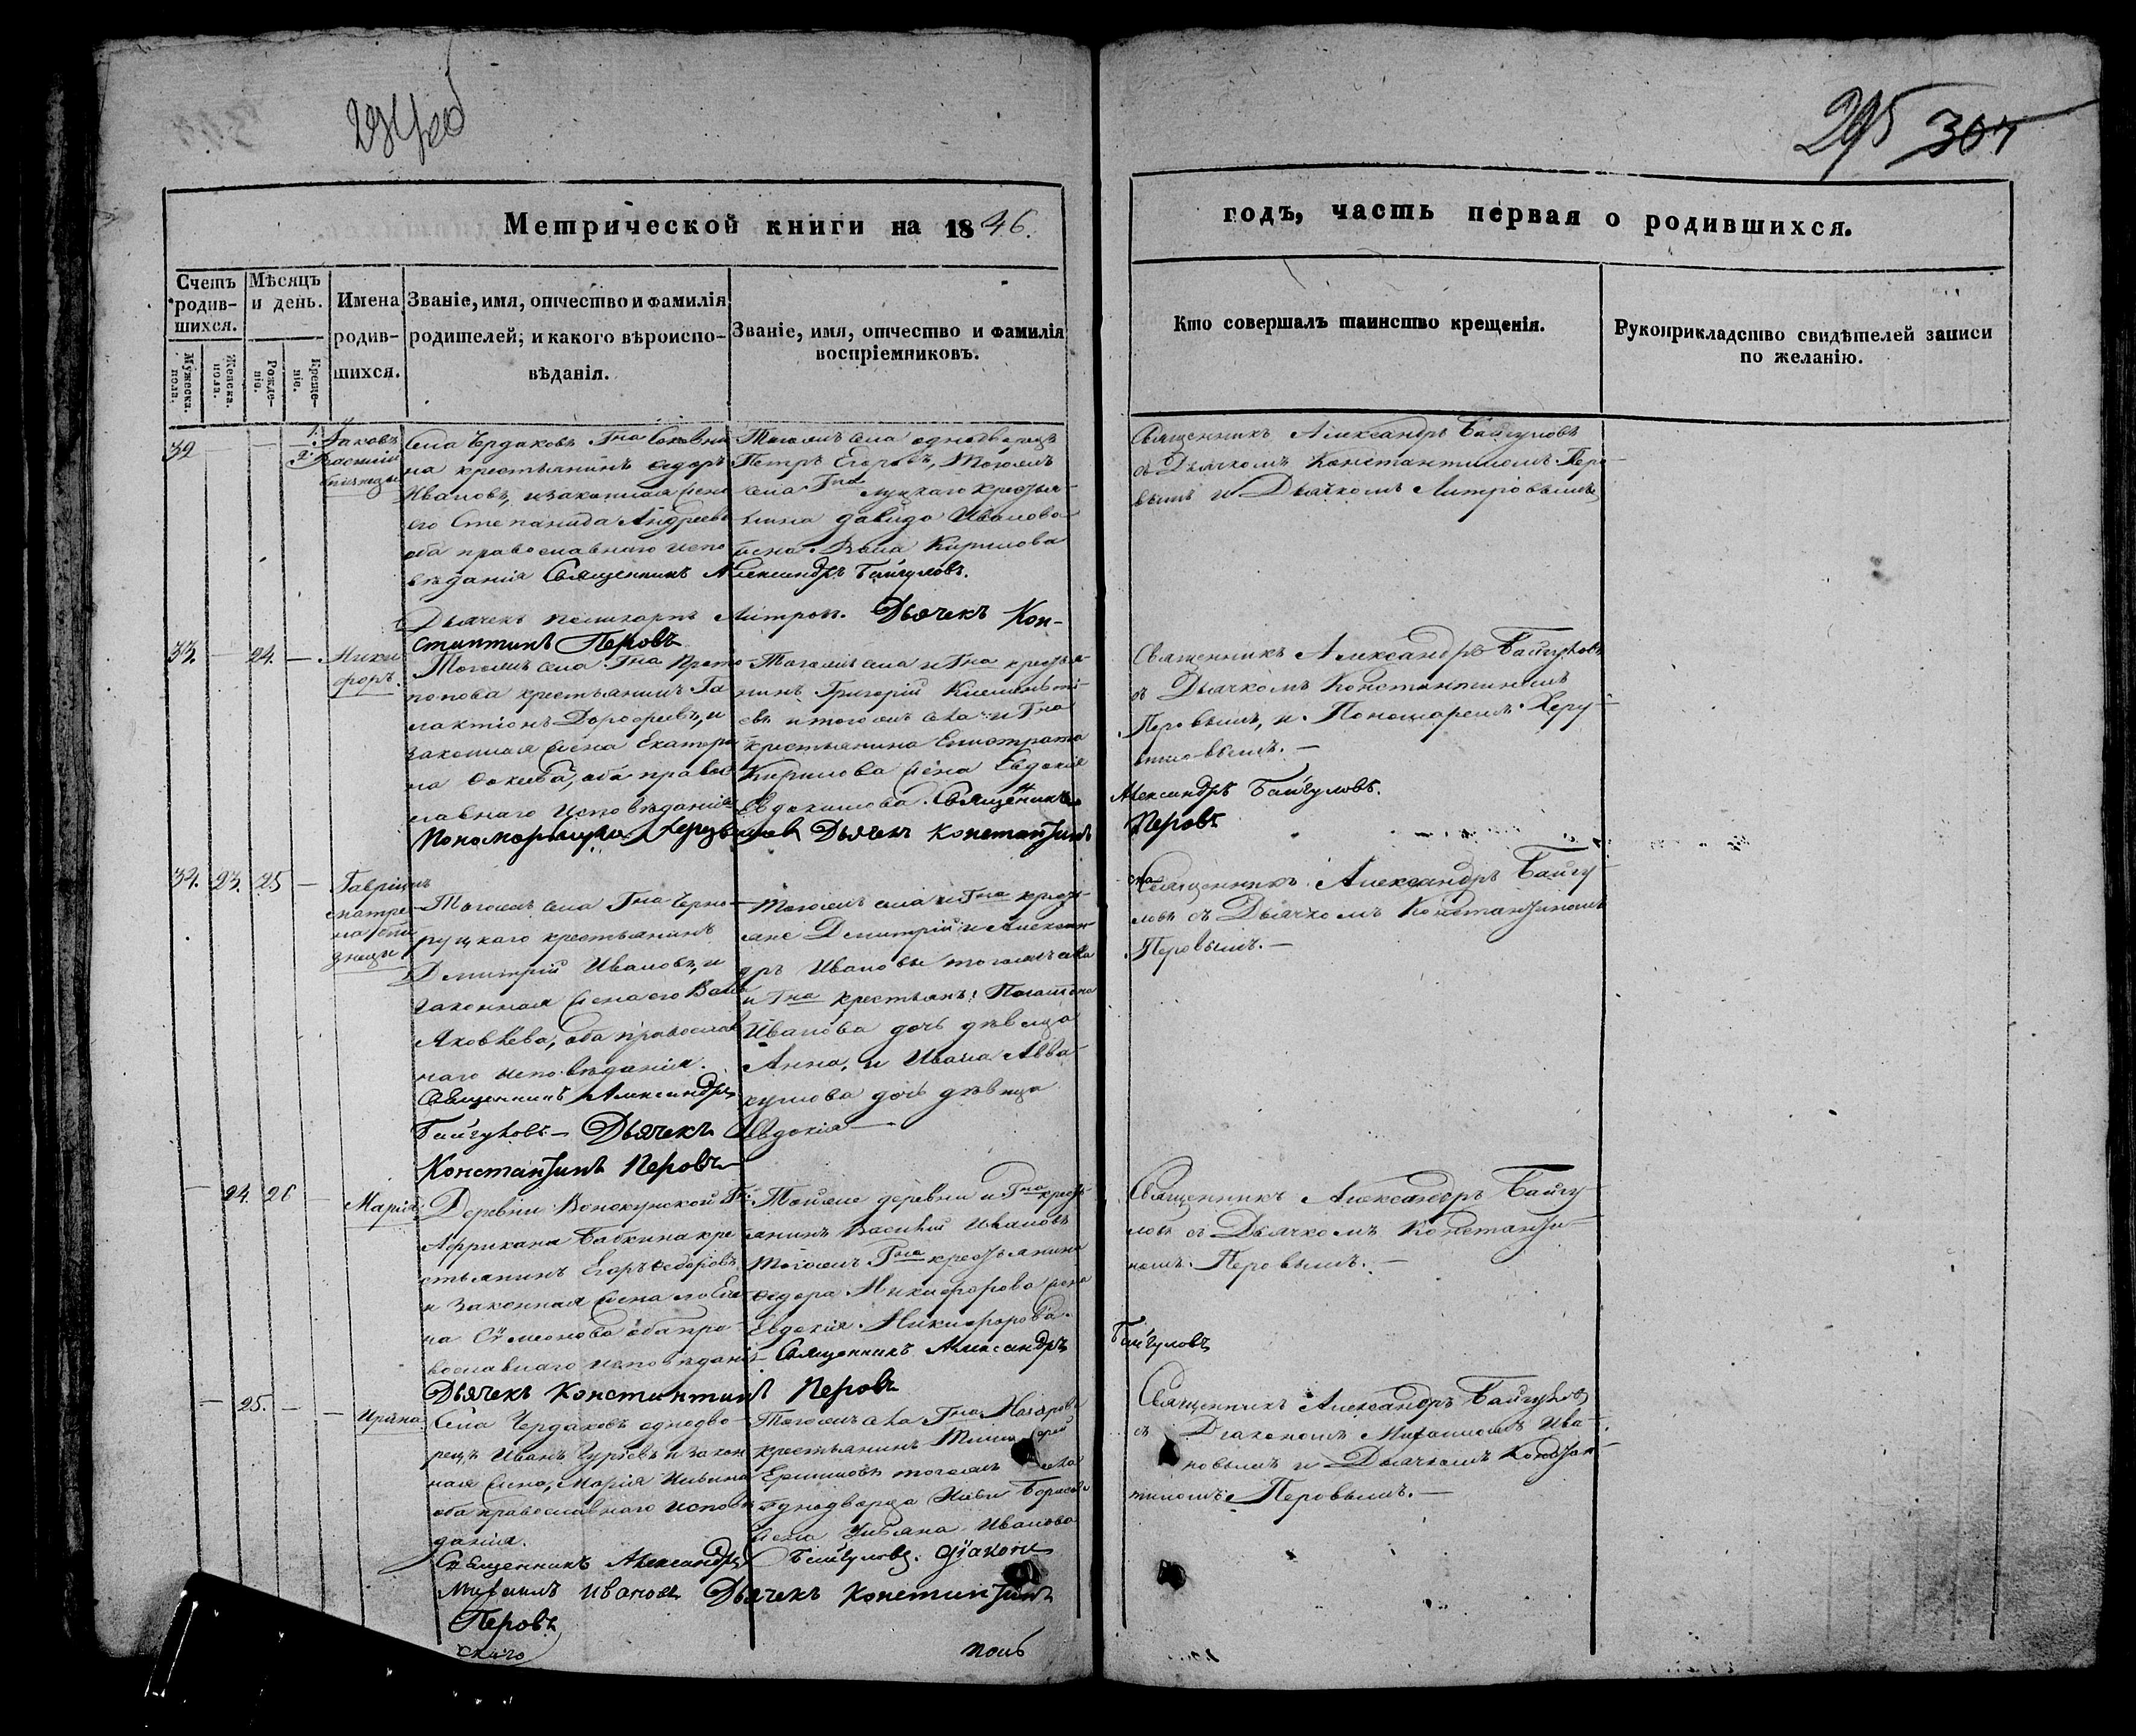 294об
295 304
Метрической книги на 1846.
годъ, часть первая о родившихся.
Счетъ родив-
шихся.
Мѣсяцъ
и день.
Мужеска.
пола.
Женска.
пола.
Рожде-
нія.
Креще-
нія.
Имена
родив-
шихся.
Званіе, имя, отчество и фамилія
родителей; и какого вѣроиспо-
вѣданія.
Званіе, имя, отчество и фамилія
воспріемниковъ.
Кто совершалъ таинство крещенія.
Рукоприкладство свидѣтелей записи
по желанію.
32
1. Іаковъ
2. Василій
близнецы
Села Чердаковъ Гна
на крестьянинъ Ѳедоръ
Ивановъ, и законная жена
его Степанида Андреева
оба православнаго испо
вѣданія Священникъ Александръ Байгуловъ.
Дьячекъ Поликарпъ Митров. Дьячекъ Кон-
стантинъ Перовъ
Тогожъ села однодворецъ
Петръ Егоровъ, тогожъ
села Гна луцкаго крестья-
нина Давида Иванова
жена Кирилова
Священникъ Александръ Байгуловъ
съ Дьячкомъ Константиномъ Перо-
вымъ и Дьячкомъ Митровымъ
33. 24.
Ники
форъ.
Тогожъ села Гна Прото
попова крестьянинъ Га
лактіонъ Дорофѣевъ, и
законная жена Екатери
на Фокина, оба право
славнаго исповѣданія
Тогожъ села и Гна крестья-
нинъ Григорій Клименті-
евъ и тогожъ села и Гна
крестьянина Елистрата
Кирилова жена Евдокія
Евдокимова. Священникъ
Александръ Байгуловъ.
Дьячекъ Константинъ
Перовъ
Священникъ Александръ Байгуловъ
съ Дьячкомъ Константиномъ
Перовымъ, и Пономаремъ Херу-
вимовымъ.—
34. 23. 25
Гавріилъ
и Матре
на близ
нецы
Тогожъ села Гна Черно-
руцкаго крестьянинъ
Дмитрій Ивановъ, и
законная жена его
Яковлева, оба православ
наго исповѣданія.
Священникъ Александръ
Байгуловъ— Дьячекъ
Константинъ Перовъ
Тогожъ села и Гна кресть-
яне Дмитрій и Алексан-
дръ Ивановы тогожъ села
и Гна крестьянъ:
Иванова дочь дѣвица
Анна, и Ивана Авва-
кумова дочь дѣвица
Евдокія—
Священникъ Александръ Байгу-
ловъ съ Дьячкомъ Константиномъ
Перовымъ.—
24. 26
Марія
Деревни Г:
Африкана Бабкина кре
стьянинъ Егоръ Ѳедоровъ,
и законная жена его Еле
на Симеонова оба пра-
вославнаго исповѣданія
Тойже деревни и Гна кресть
янинъ Василій Ивановъ
тогожъ Гна крестьянина
Ѳедора Никифорова жена
Евдокія Никифорова.
Священникъ Александръ
Байгуловъ
Дьячекъ Константинъ Перовъ
Священникъ Александръ Байгу-
ловъ съ Дьячкомъ Константи-
номъ Перовымъ.—
25.
Ирина
Села Чердаковъ однодво-
рецъ Иванъ Гурьевъ и закон
ная жена, Марія Ильина
оба православнаго исповѣ
данія.
Священникъ Александръ Байгуловъ. Діаконъ
Михаилъ Ивановъ Дьячекъ Константинъ
Перовъ
Тогожъ села Гна
крестьянинъ
тогожъ села
однодворца
жена Ульяна Иванова
Священникъ Александръ Байгуловъ
съ Діакономъ Михаиломъ Ива-
новымъ и Дьячкомъ Констан-
тиномъ Перовымъ.—